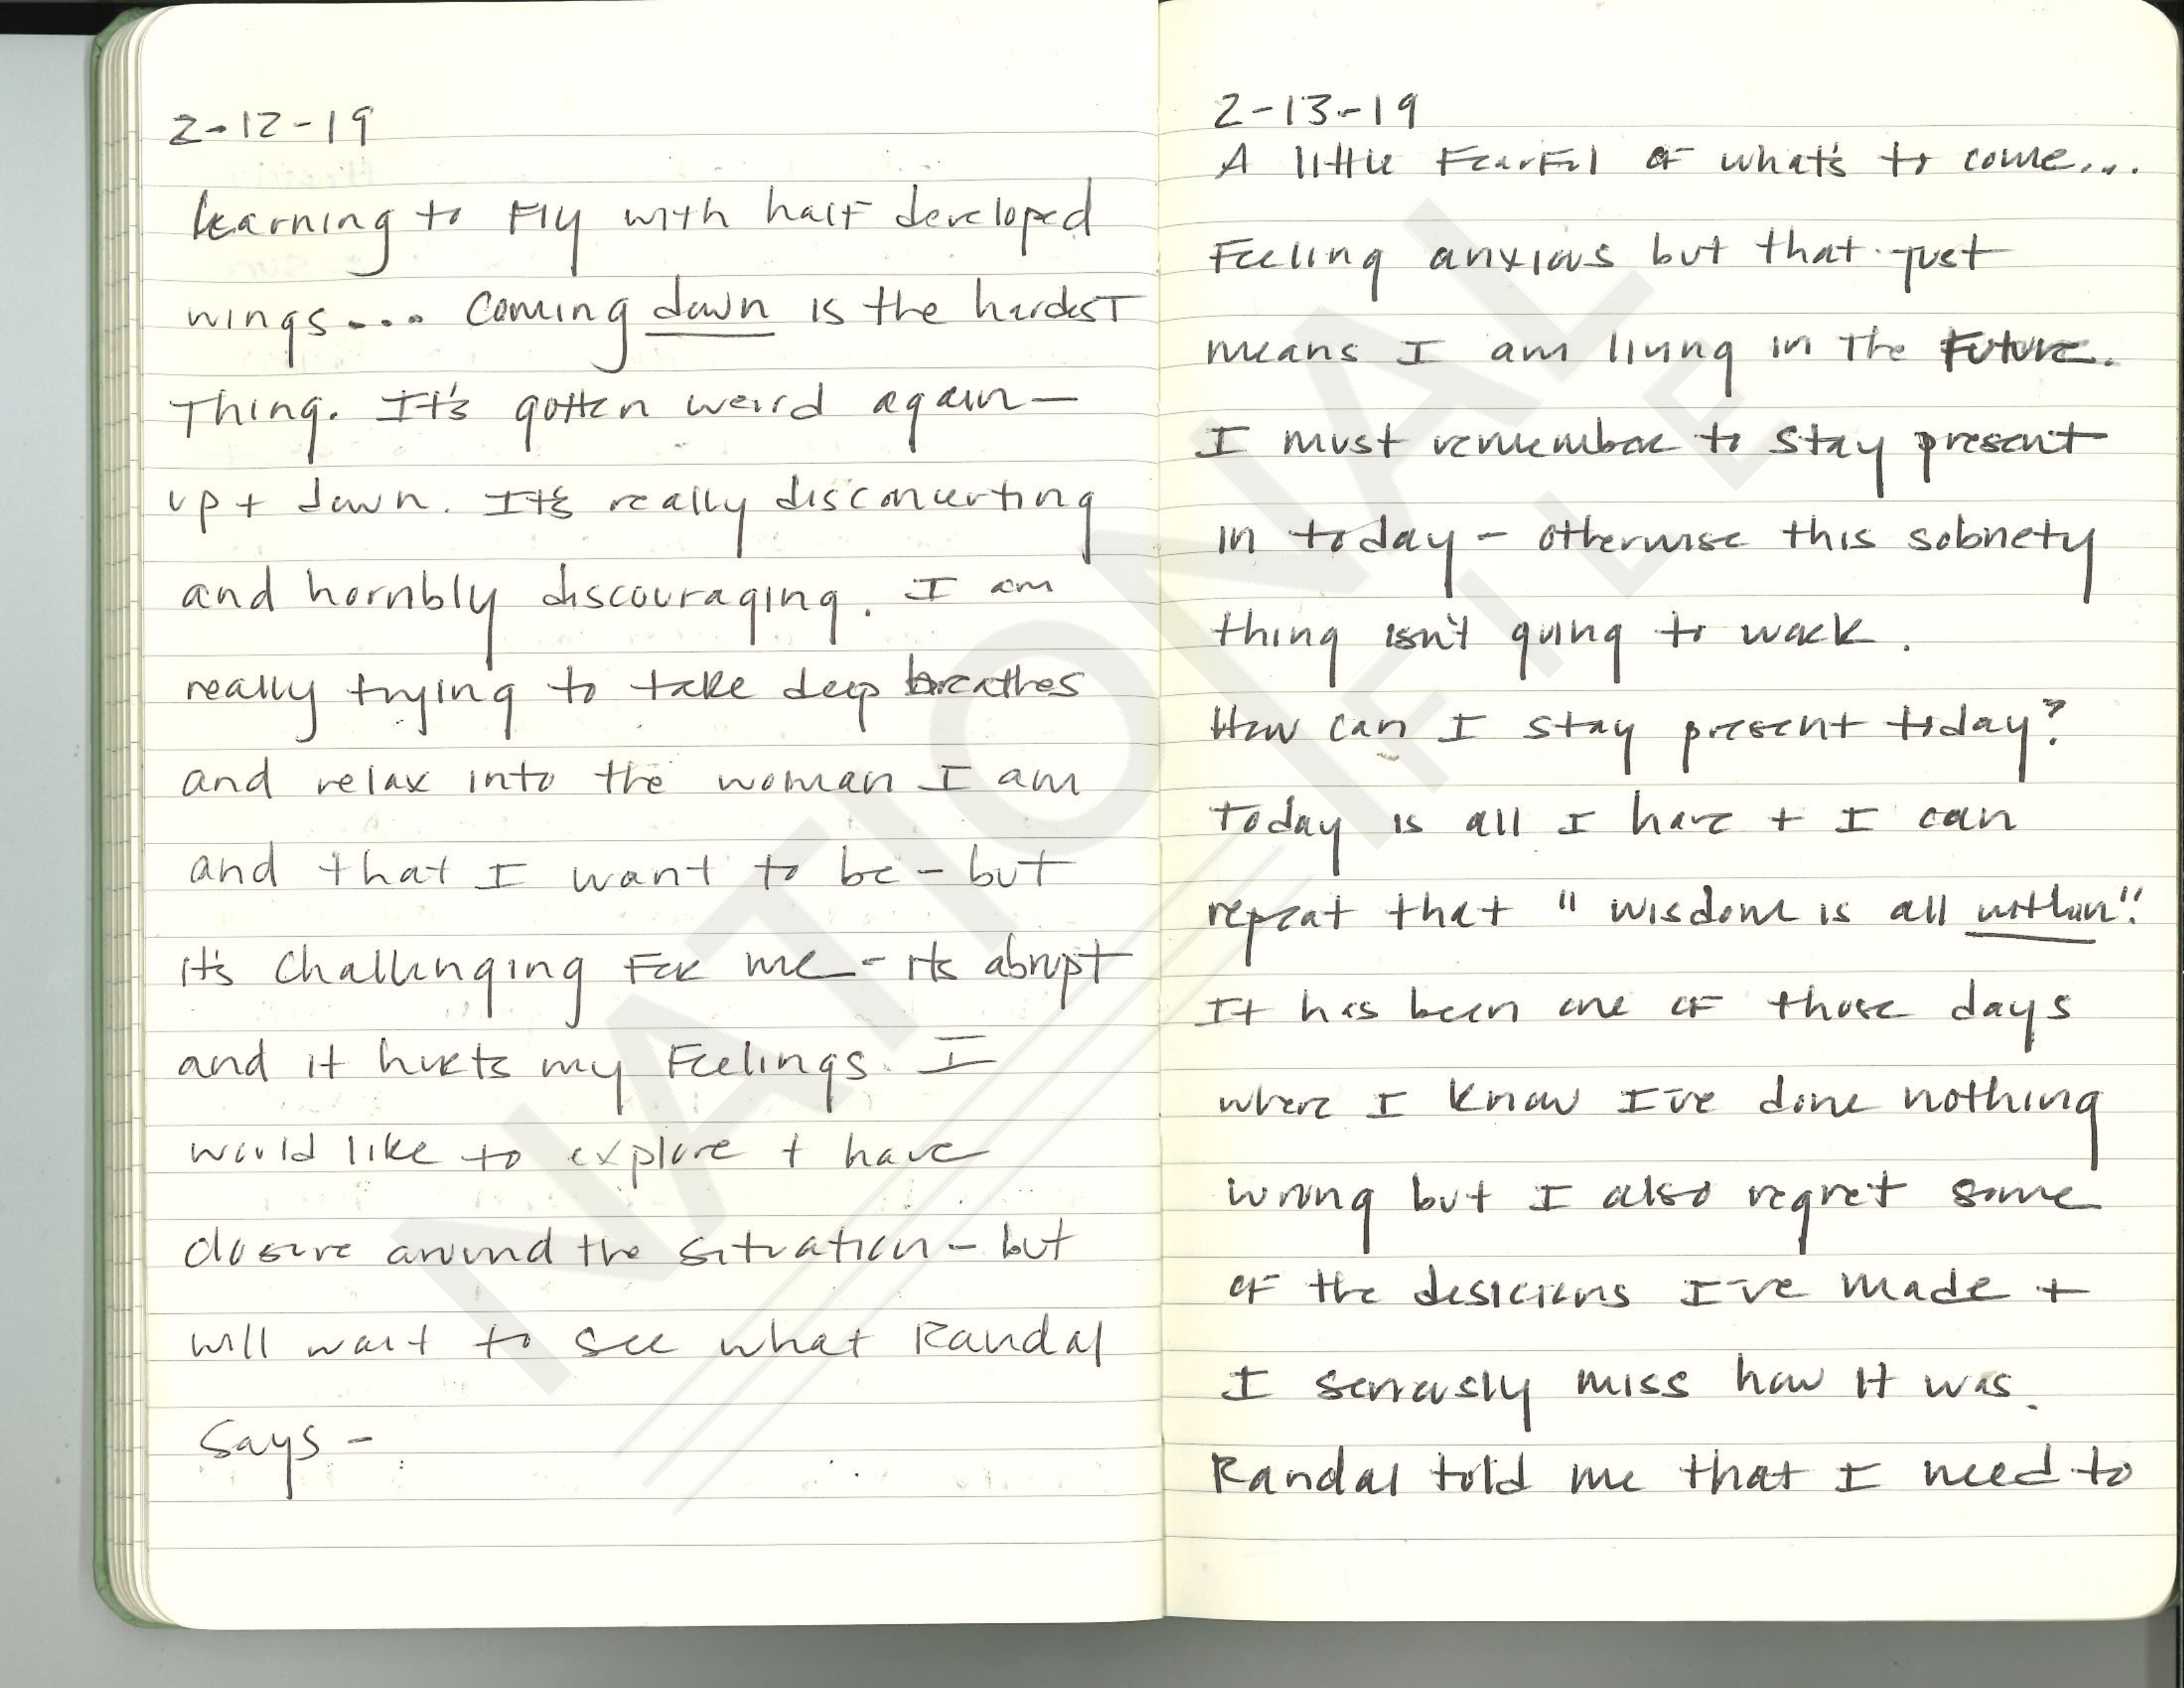 2-12-19
learning to fly with half developed
wings.... Coming down is the hardest
Thing. It's gotten weird again—
up + down. It's really disconcerting
and horribly discouraging. I am
really trying to take deep breathes
and relax into the woman I am
and that I want to be - but
it's challenging for me - its abrupt
and it hurts my feelings. I
would like to explore + have
closure around the situation - but
will wait to see what Randal
says -
2-13-19
A little fearful of what's to come...
Feeling anxious but that just
means I am living in the future.
I must remember to stay present
in today - otherwise this sobriety
thing isn't going to work.
How can I stay present today?
Today is all I have + I can
repeat that "wisdom is all within".
It has been one of those days
where I know I've done nothing
wrong but I also regret some
of the desicions I've made +
I seriously miss how it was.
Randal told me that I need to
NATIONAL
FILE